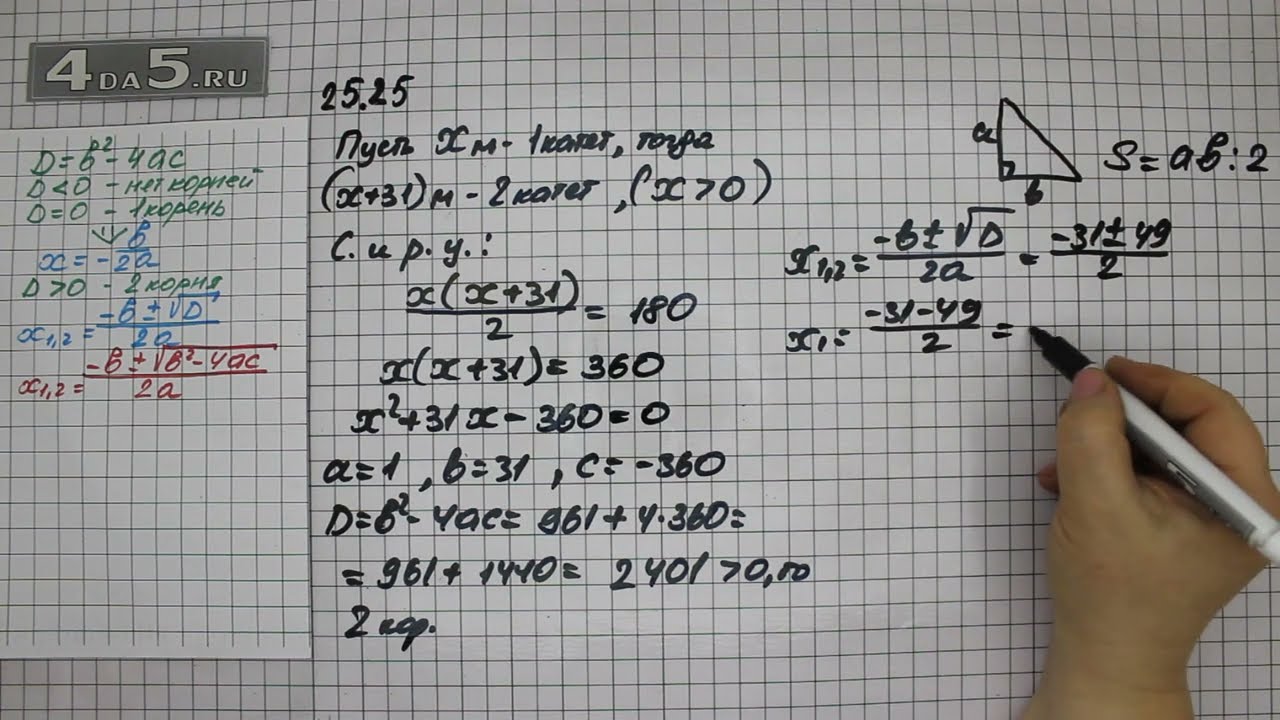 4DA5.RU
D=в²-4ас
D<0 - нет корней
D=0 - 1 корень
x=-в/2а
D>0 - 2 корня
x₁,₂=(-в±√D)/2а
x₁,₂=(-в±√(в²-4ас))/2а
25.25
Пусть xм - 1 катет, тогда
(x+31)м - 2 катет, (x>0)
С. и р. у.:
x(x+31)/2 = 180
x(x+31)=360
x²+31x-360=0
а=1, в=31, с=-360
D=в²-4ас=961+4·360=
=961+1440=2401>0, то
2 кор.
а
в
S=ав:2
x₁,₂=(-в±√D)/2а=(-31±49)/2
x₁=(-31-49)/2=